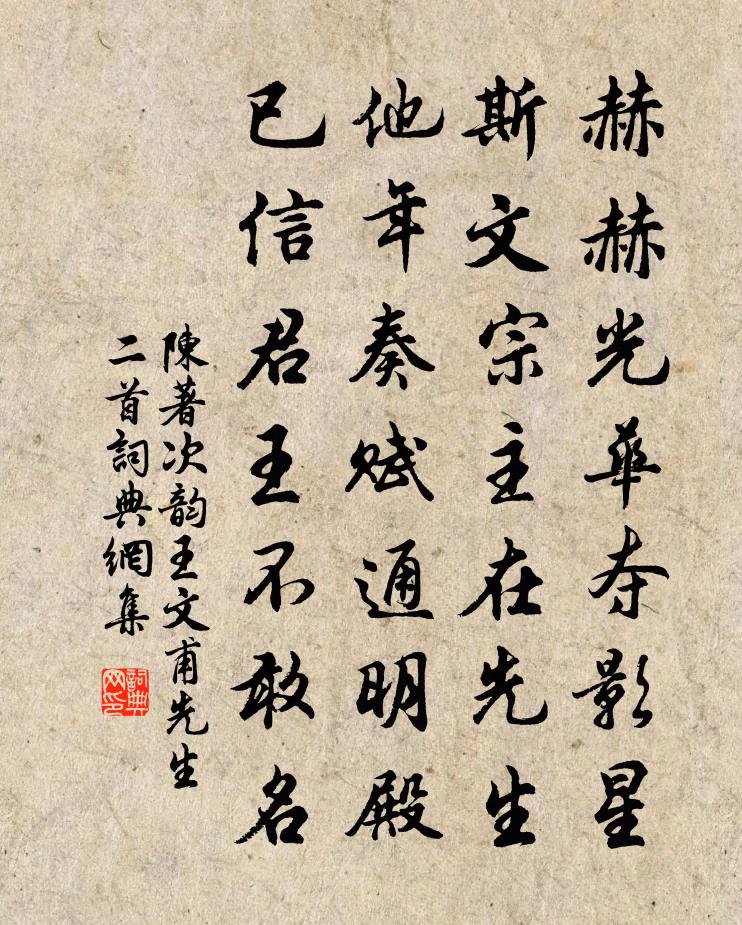 赫赫光華夺影星
斯文宗主在先生
他年奏赋通明殿
已信君王不敢名
陳著次韵王文甫先生
二首詞典網集
詞典网印